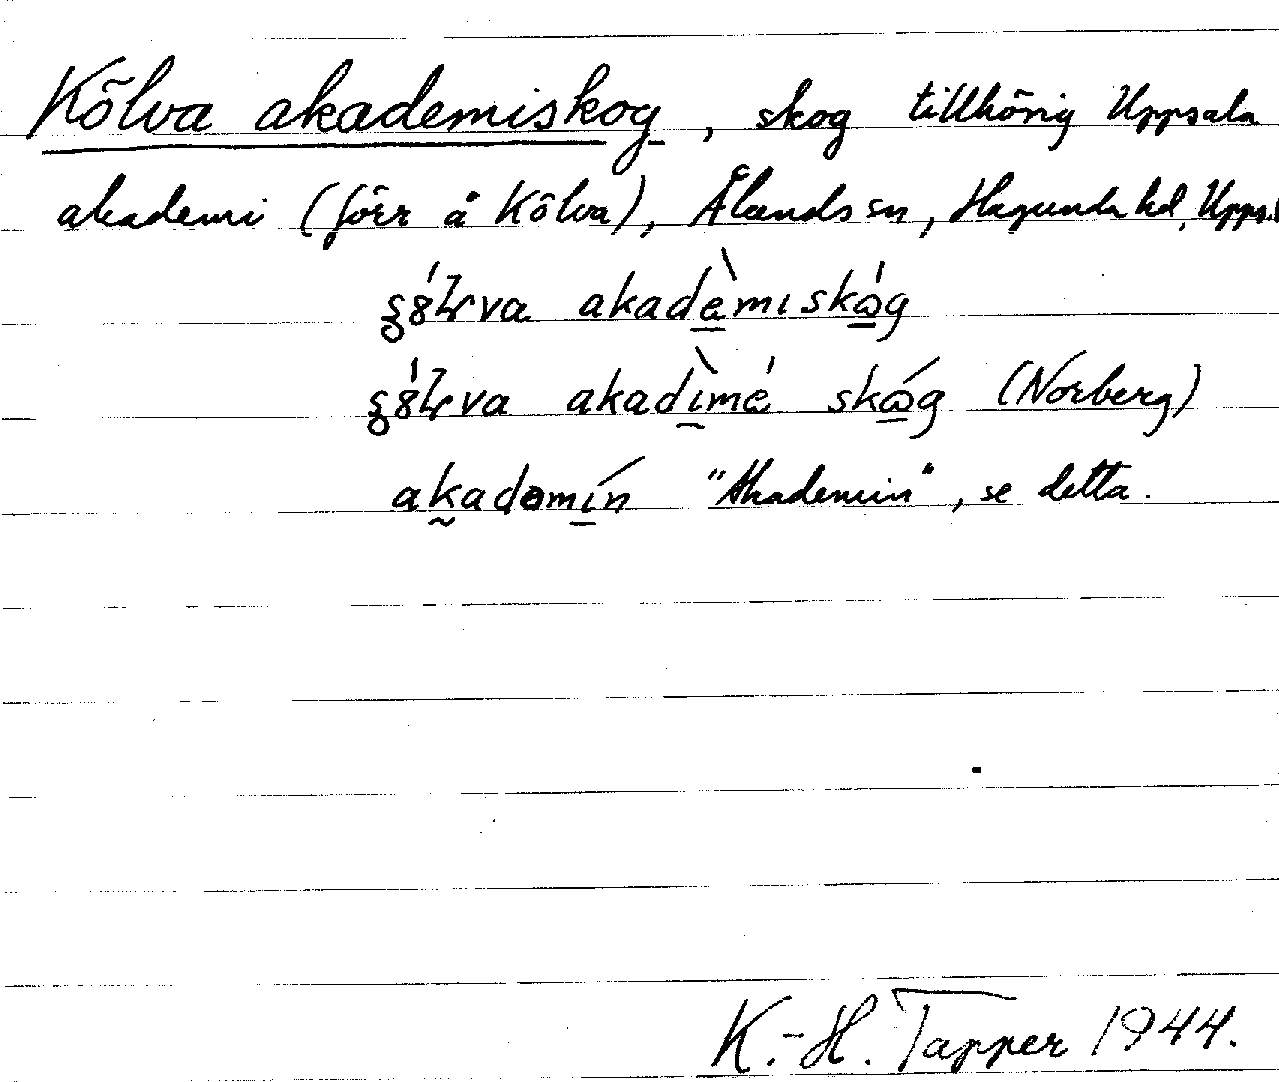 Kölva akademiskog, skog tillhörig Uppsala
akademi (förr å Kölva), Ålands sn, Hagunda hd, Upps.l
akadèmıskǻg
akadìmé skǻg (Norberg)
akadəmín "Akademin", se detta.
K.-H. Tapper 1944.